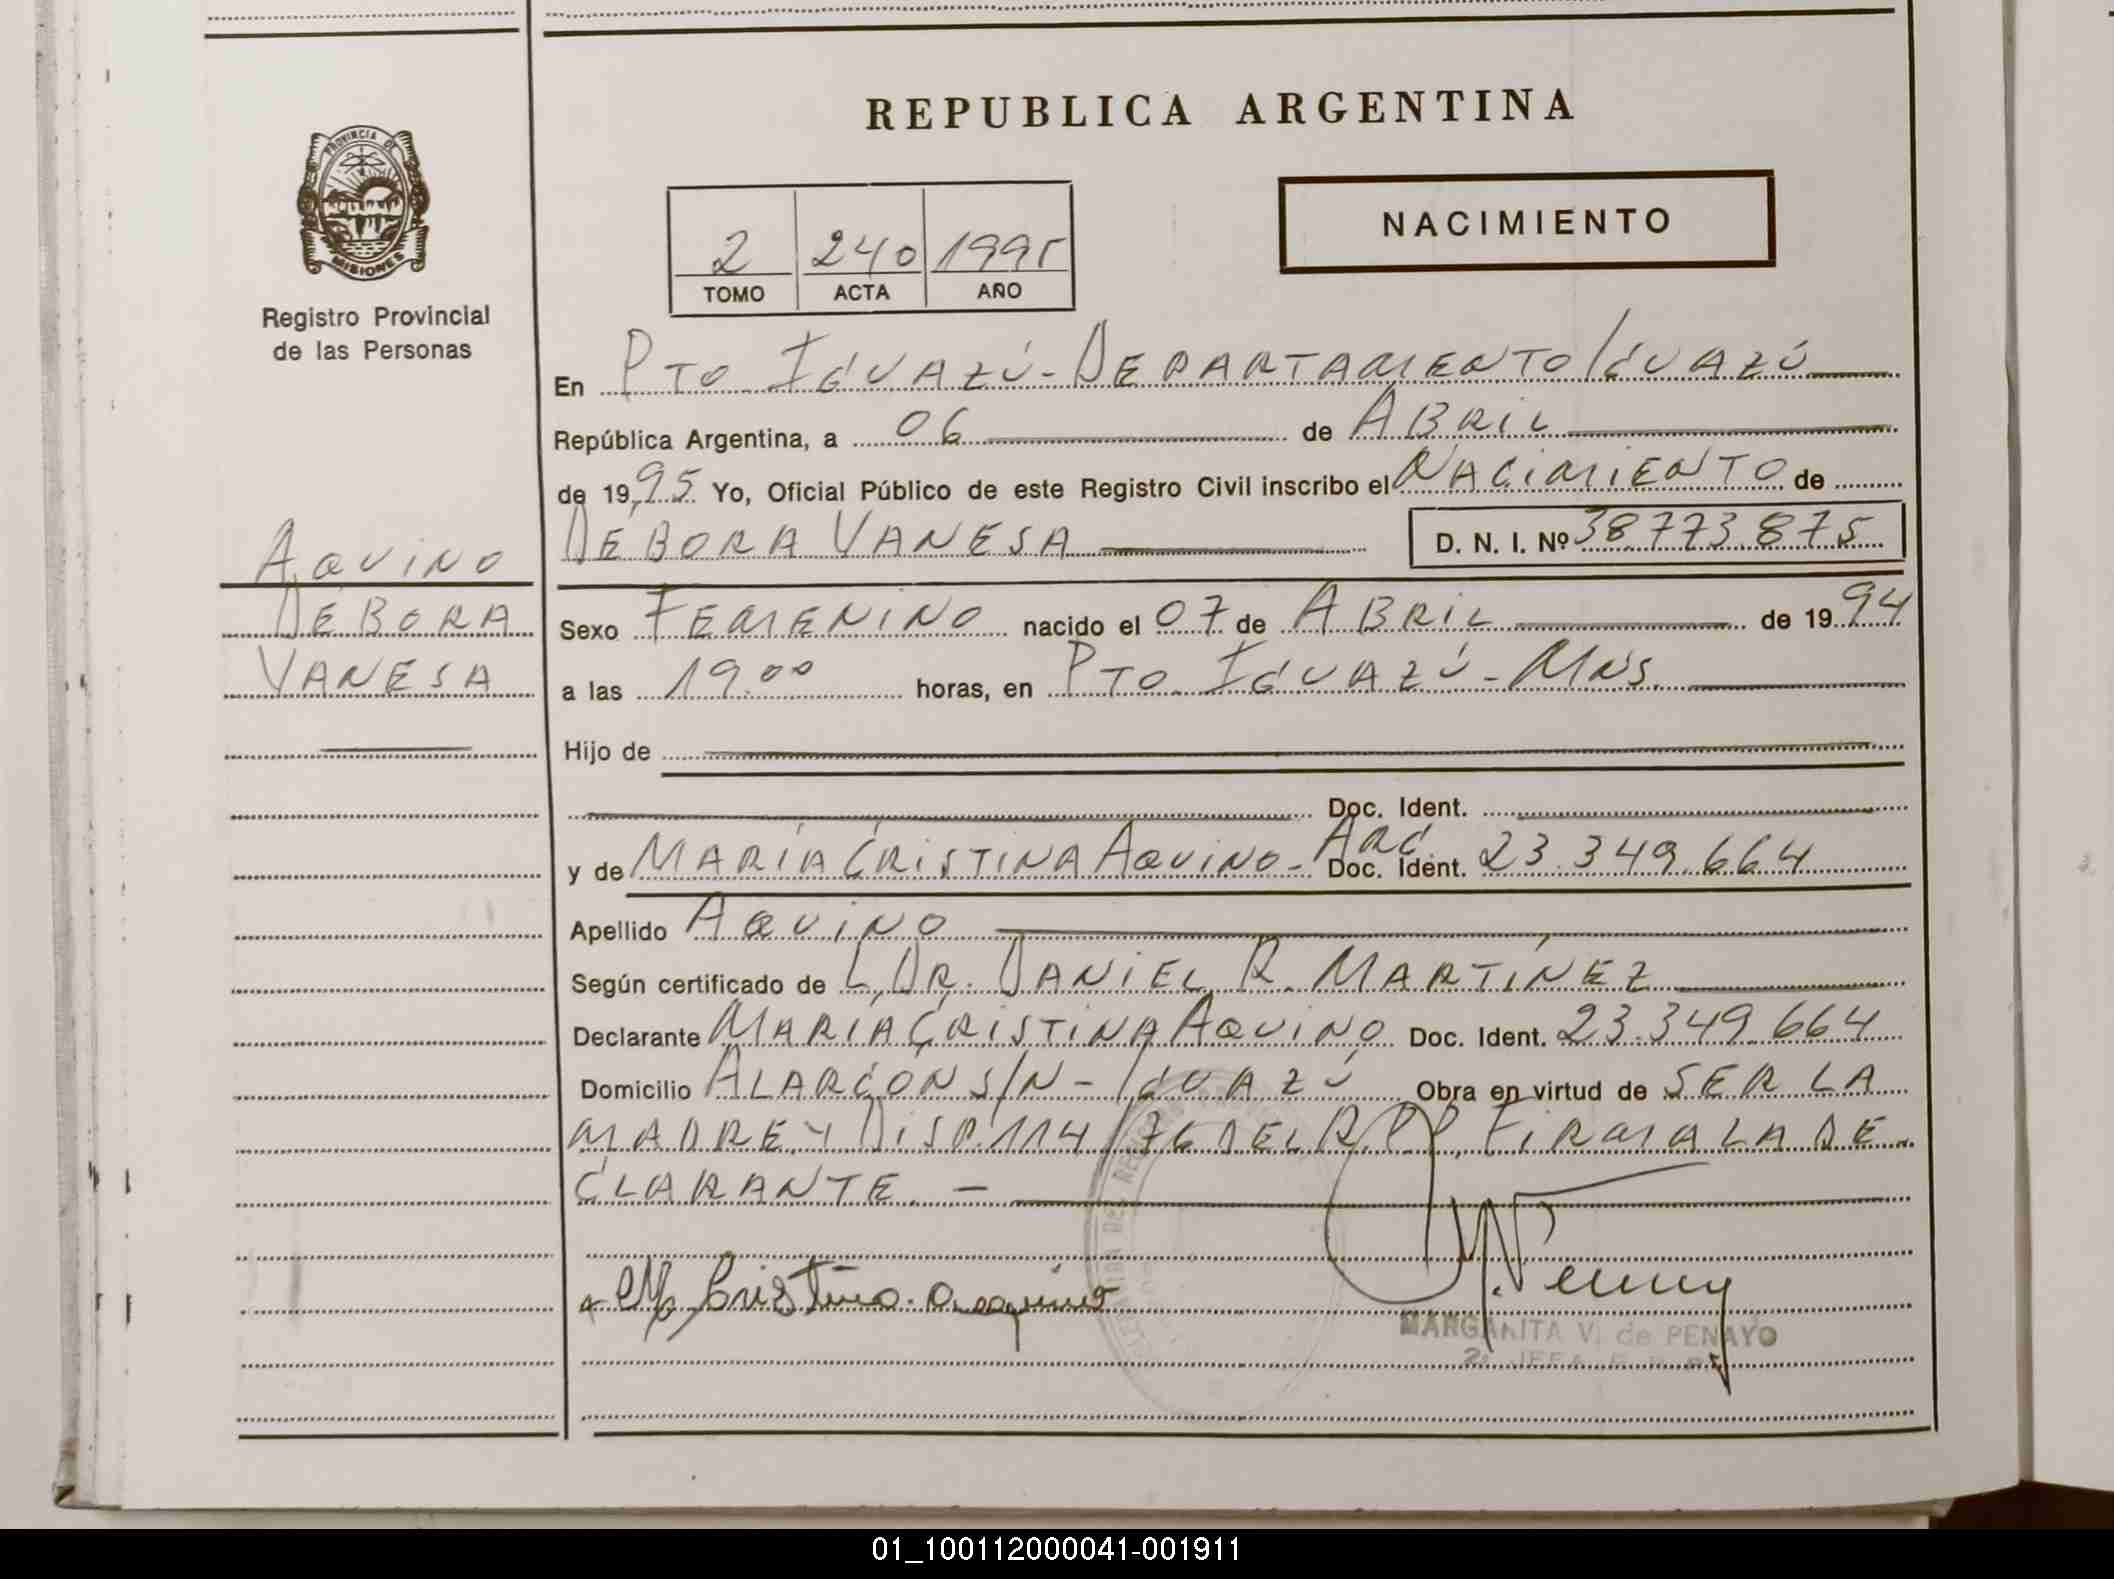 REPUBLICA ARGENTINA
PROVINCIA DE MISIONES
Registro Provincial
de las Personas
NACIMIENTO
2 240 1995
TOMO ACTA AÑO
En Pto Iguazú - Departamento Iguazú
República Argentina, a 06 de Abril
de 1995 Yo, Oficial Público de este Registro Civil inscribo el Nacimiento de
Debora Vanesa D. N. I. Nº 38.773.875
Aquino
Debora
Vanesa
Sexo Femenino nacido el 07 de Abril de 1994
a las 19.00 horas, en Pto Iguazú - Mns.
Hijo de
Doc. Ident.
y de María Cristina Aquino - Arg. Doc. Ident. 23.349.664
Apellido Aquino
Según certificado de Dr. Daniel R. Martínez
Declarante María Cristina Aquino Doc. Ident. 23.349.664
Domicilio Alarcón S/N - Iguazú Obra en virtud de ser la
madre y Disp. 114/76 del R.P.P. Firma la de
clarante. -
Cristina Aquino
MARGARITA V. de PENAYO
01_100112000041-001911